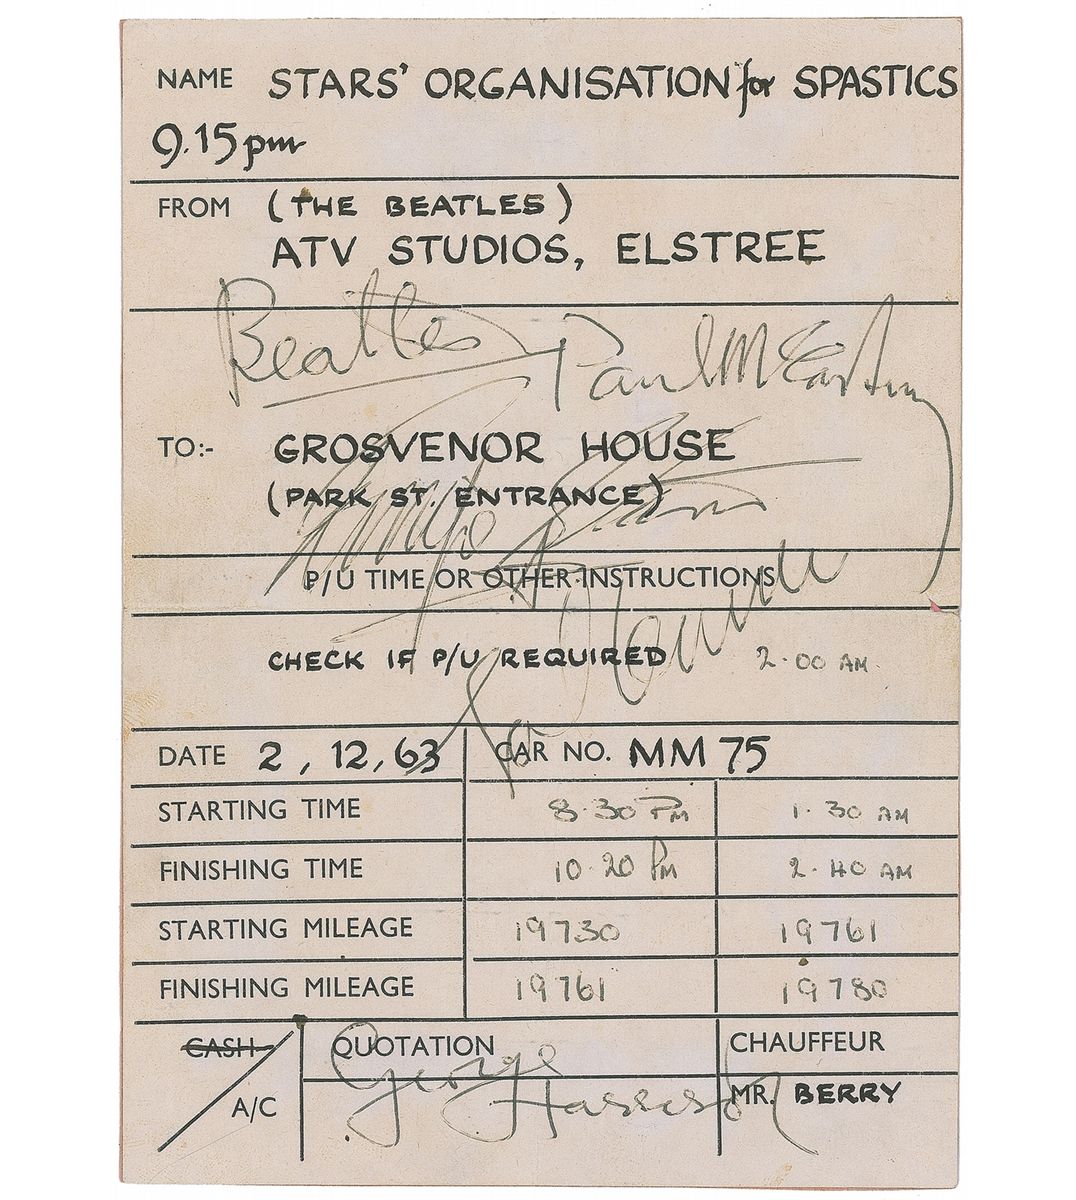 NAME STARS' ORGANISATION for SPASTICS
9.15pm
FROM (THE BEATLES)
ATV STUDIOS, ELSTREE
Beatles Paul McCartney
TO:- GROSVENOR HOUSE
(PARK ST. ENTRANCE)
Ringo Starr
P/U TIME OR OTHER INSTRUCTIONS
John Lennon
CHECK IF P/U REQUIRED 2.00 AM.
DATE 2, 12, 63 CAR NO. MM 75
STARTING TIME 8.30 PM 1.30 AM
FINISHING TIME 10.20 PM 2.40 AM
STARTING MILEAGE 19730 19761
FINISHING MILEAGE 19761 19780
CASH QUOTATION CHAUFFEUR
George Harrison
A/C MR. BERRY